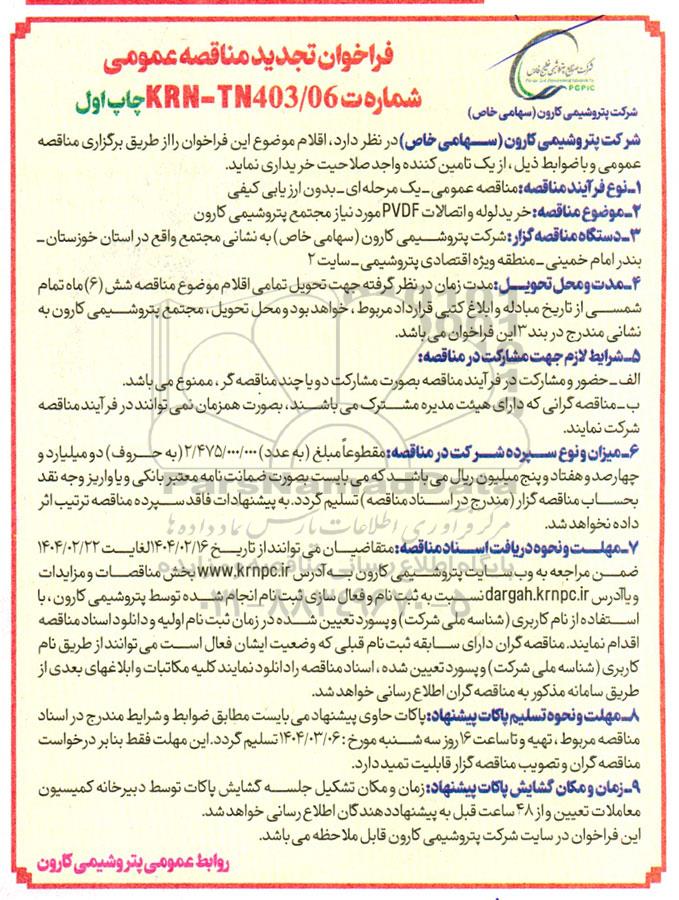 فراخوان تجدید مناقصه عمومی
شماره ت KRN-TN403/06 چاپ اول
شرکت صنایع پتروشیمی خلیج فارس
PGPIC
شرکت پتروشیمی کارون (سهامی خاص)
شرکت پتروشیمی کارون (سهامی خاص) در نظر دارد، اقلام موضوع این فراخوان را از طریق برگزاری مناقصه
عمومی و با ضوابط ذیل ، از یک تامین کننده واجد صلاحیت خریداری نماید.
۱ـ نوع فرآیند مناقصه: مناقصه عمومی ـ یک مرحله ای ـ بدون ارزیابی کیفی
۲ـ موضوع مناقصه: خرید لوله و اتصالات PVDF مورد نیاز مجتمع پتروشیمی کارون
۳ـ دستگاه مناقصه گزار: شرکت پتروشیمی کارون (سهامی خاص) به نشانی مجتمع واقع در استان خوزستان ـ
بندر امام خمینی ـ منطقه ویژه اقتصادی پتروشیمی ـ سایت ۲
۴ـ مدت و محل تحویل: مدت زمان در نظر گرفته جهت تحویل تمامی اقلام موضوع مناقصه شش (۶) ماه تمام
شمسی از تاریخ مبادله و ابلاغ کتبی قرارداد مربوط ، خواهد بود و محل تحویل ، مجتمع پتروشیمی کارون به
نشانی مندرج در بند ۳ این فراخوان می باشد.
۵ـ شرایط لازم جهت مشارکت در مناقصه:
الف ـ حضور و مشارکت در فرآیند مناقصه بصورت مشارکت دو یا چند مناقصه گر ، ممنوع می باشد.
ب ـ مناقصه گرانی که دارای هیئت مدیره مشترک می باشند، بصورت همزمان نمی توانند در فرآیند مناقصه
شرکت نمایند.
۶ـ میزان و نوع سپرده شرکت در مناقصه: مقطوعاً مبلغ (به عدد) ۲/۴۷۵/۰۰۰/۰۰۰ (به حروف) دو میلیارد و
چهارصد و هفتاد و پنج میلیون ریال می باشد که می بایست بصورت ضمانت نامه معتبر بانکی و یا واریز وجه نقد
بحساب مناقصه گزار (مندرج در اسناد مناقصه) تسلیم گردد. به پیشنهادات فاقد سپرده مناقصه ترتیب اثر
داده نخواهد شد.
۷ـ مهلت و نحوه دریافت اسناد مناقصه: متقاضیان می توانند از تاریخ ۱۴۰۴/۰۲/۱۶ لغایت ۱۴۰۴/۰۲/۲۲
ضمن مراجعه به وب سایت پتروشیمی کارون به آدرس www.krnpc.ir بخش مناقصات و مزایدات
و یا آدرس dargah.krnpc.ir نسبت به ثبت نام و فعال سازی ثبت نام انجام شده توسط پتروشیمی کارون ، با
استفاده از نام کاربری (شناسه ملی شرکت) و پسورد تعیین شده در زمان ثبت نام اولیه و دانلود اسناد مناقصه
اقدام نمایند. مناقصه گران دارای سابقه ثبت نام قبلی که وضعیت ایشان فعال است می توانند از طریق نام
کاربری (شناسه ملی شرکت) و پسورد تعیین شده ، اسناد مناقصه را دانلود نمایند کلیه مکاتبات و ابلاغهای بعدی از
طریق سامانه مذکور به مناقصه گران اطلاع رسانی خواهد شد.
۸ـ مهلت و نحوه تسلیم پاکات پیشنهاد: پاکات حاوی پیشنهاد می بایست مطابق ضوابط و شرایط مندرج در اسناد
مناقصه مربوط ، تهیه و تا ساعت ۱۶ روز سه شنبه مورخ : ۱۴۰۴/۰۳/۰۶ تسلیم گردد. این مهلت فقط بنابر درخواست
مناقصه گران و تصویب مناقصه گزار قابلیت تمدید دارد.
۹ـ زمان و مکان گشایش پاکات پیشنهاد: زمان و مکان تشکیل جلسه گشایش پاکات توسط دبیرخانه کمیسیون
معاملات تعیین و از ۴۸ ساعت قبل به پیشنهاددهندگان اطلاع رسانی خواهد شد.
این فراخوان در سایت شرکت پتروشیمی کارون قابل ملاحظه می باشد.
روابط عمومی پتروشیمی کارون
ParsNamadData
مرکز فرآوری اطلاعات پارس نماد داده ها
پایگاه اطلاع رسانی مناقصه و مزایده
۰۲۱-۸۸۳۴۹۶۷۰-۵